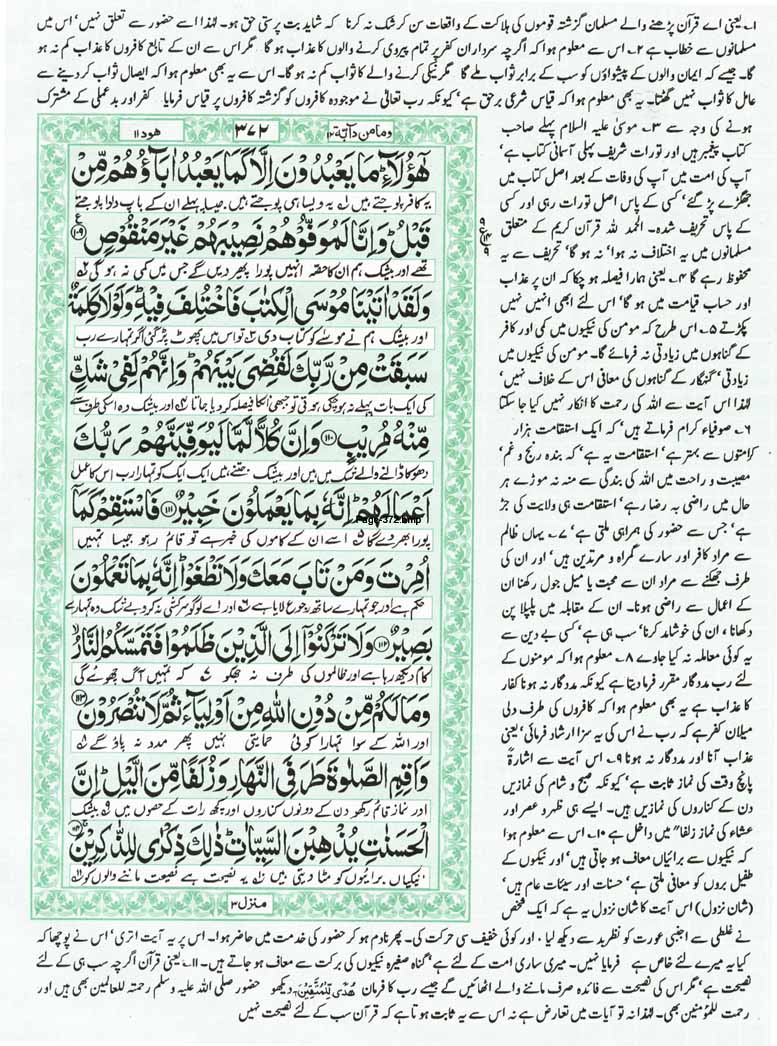 ۱۔ یعنی اے قرآن پڑھنے والے مسلمان گزشتہ قوموں کی ہلاکت کے واقعات سن کر شک نہ کرنا کہ شاید بت پرستی حق ہو۔ لہٰذا اسے حضور سے تعلق نہیں' اس میں
مسلمانوں سے خطاب ہے ۲۔ اس سے معلوم ہوا کہ اگرچہ سرداران کفر پر تمام پیروی کرنے والوں کا عذاب ہو گا مگر اس سے ان کے تابع کافروں کا عذاب کم نہ ہو
گا۔ جیسے کہ ایمان والوں کے پیشواؤں کو سب کے برابر ثواب ملے گا مگر نیکی کرنے والے کا ثواب کم نہ ہو گا۔ اس سے یہ بھی معلوم ہوا کہ ایصال ثواب کر دینے سے
عامل کا ثواب نہیں گھٹتا۔ یہ بھی معلوم ہوا کہ قیاس شرعی برحق ہے' کیونکہ رب تعالیٰ نے موجودہ کافروں کو گزشتہ کافروں پر قیاس فرمایا کفر اور بدعملی کے مشترک
ہونے کی وجہ سے ۳۔ موسیٰ علیہ السلام پہلے صاحب
کتاب پیغمبر ہیں اور تورات شریف پہلی آسمانی کتاب ہے'
آپ کی امت میں آپ کی وفات کے بعد اصل کتاب میں
جھگڑے پڑ گئے' کسی کے پاس اصل تورات رہی اور کسی
کے پاس تحریف شدہ۔ الحمد للہ قرآن کریم کے متعلق
مسلمانوں میں یہ اختلاف نہ ہوا' نہ ہو گا' تحریف سے یہ
محفوظ رہے گا ۴۔ یعنی ہمارا فیصلہ ہو چکا کہ ان پر عذاب
اور حساب قیامت میں ہو گا' اس لئے ابھی انہیں نہیں
پکڑتے ۵۔ اس طرح کہ مومن کی نیکیوں میں کمی اور کافر
کے گناہوں میں زیادتی نہ فرمائے گا۔ مومن کی نیکیوں میں
زیادتی' گنہگار کے گناہوں کی معافی اس کے خلاف نہیں'
لہٰذا اس آیت سے اللہ کی رحمت کا انکار نہیں کیا جا سکتا
۶۔ صوفیاء کرام فرماتے ہیں' کہ ایک استقامت ہزار
کرامتوں سے بہتر ہے' استقامت یہ ہے' کہ بندہ رنج و غم'
مصیبت و راحت میں اللہ کی بندگی سے منہ نہ موڑے ہر
حال میں راضی بہ رضا رہے' استقامت ہی ولایت کی جڑ
ہے' جس سے حضور کی ہمراہی ملتی ہے' ۷۔ یہاں ظالم
سے مراد کافر اور سارے گمراہ و مرتدین ہیں' اور ان کی
طرف جھکنے سے مراد ان سے محبت یا میل جول رکھنا ان
کے اعمال سے راضی ہونا۔ ان کے مقابلہ میں پلپلا پن
دکھانا ، ان کی خوشامد کرنا' سب ہی ہے' کسی بے دین سے
یہ کوئی معاملہ نہ کیا جاوے ۸۔ معلوم ہوا کہ مومنوں کے
لئے رب مددگار مقرر فرما دیتا ہے کیونکہ مددگار نہ ہونا کفار
کا عذاب ہے یہ بھی معلوم ہوا کہ کافروں کی طرف دلی
میلان کفر ہے کہ رب نے اس کی یہ سزا ارشاد فرمائی' یعنی
عذاب آنا اور مددگار نہ ہونا ۹۔ اس آیت سے اشارۃً
پانچ وقت کی نماز ثابت ہے' کیونکہ صبح و شام کی نمازیں
دن کے کناروں کی نمازیں ہیں۔ ایسے ہی ظہر و عصر اور
عشاء کی نماز زلفا" میں داخل ہے ۱۰۔ اس سے معلوم ہوا
کہ نیکیوں سے برائیاں معاف ہو جاتی ہیں' اور نیکوں کے
طفیل بروں کو معافی ملتی ہے' حسنات اور سیئات عام ہیں'
(شان نزول) اس آیت کا شان نزول یہ ہے کہ ایک شخص
ومامن دآبۃ ۱۲
۳۷۲
ھود ۱۱
هٰۤؤُلَآءِ ؕ مَا يَعْبُدُوْنَ اِلَّا كَمَا يَعْبُدُ اٰبَآؤُهُمْ مِّنْ
یہ کافر پوجتے ہیں ۱؎ یہ ویسا ہی پوجتے ہیں جیسا پہلے ان کے باپ دادا پوجتے
قَبْلُ ؕ وَاِنَّا لَمُوَفُّوْهُمْ نَصِيْبَهُمْ غَيْرَ مَنْقُوْصٍ ۱۰۹
تھے اور بیشک ہم ان کا حصہ انہیں پورا پھیر دیں گے جس میں کمی نہ ہو گی ۲؎
وَلَقَدْ اٰتَيْنَا مُوْسَى الْكِتٰبَ فَاخْتُلِفَ فِيْهِ ؕ وَلَوْلَا كَلِمَةٌ
اور بیشک ہم نے موسیٰ کو کتاب دی ۳؎ تو اس میں پھوٹ پڑ گئی اگر تمہارے رب
سَبَقَتْ مِنْ رَّبِّكَ لَقُضِيَ بَيْنَهُمْ ؕ وَاِنَّهُمْ لَفِيْ شَكٍّ
کی ایک بات پہلے نہ ہو چکی ہوتی تو جبھی ان کا فیصلہ کر دیا جاتا ۴؎ اور بیشک وہ اس کی طرف سے
مِّنْهُ مُرِيْبٍ ۱۱۰ وَاِنَّ كُلًّا لَّمَّا لَيُوَفِّيَنَّهُمْ رَبُّكَ
دھوکا ڈالنے والے شک میں ہیں اور بیشک جتنے ہیں ایک ایک کو تمہارا رب اس کا عمل
اَعْمَالَهُمْ ؕ اِنَّهٗ بِمَا يَعْمَلُوْنَ خَبِيْرٌ ۱۱۱ فَاسْتَقِمْ كَمَاۤ
Page-372.bmp
پورا بھر دے گا ۵؎ اسے ان کے کاموں کی خبر ہے تو قائم رہو جیسا تمہیں
اُمِرْتَ وَمَنْ تَابَ مَعَكَ وَلَا تَطْغَوْا ؕ اِنَّهٗ بِمَا تَعْمَلُوْنَ
حکم ہے اور جو تمہارے ساتھ رجوع لایا ہے ۶؎ اور اے لوگو سرکشی نہ کرو بے شک وہ تمہارے
بَصِيْرٌ ۱۱۲ وَلَا تَرْكَنُوْۤا اِلَى الَّذِيْنَ ظَلَمُوْا فَتَمَسَّكُمُ النَّارُ ۙ
کام دیکھ رہا ہے اور ظالموں کی طرف نہ جھکو ۷؎ کہ تمہیں آگ چھوئے گی
وَمَا لَكُمْ مِّنْ دُوْنِ اللّٰهِ مِنْ اَوْلِيَآءَ ثُمَّ لَا تُنْصَرُوْنَ ۱۱۳
اور اللہ کے سوا تمہارا کوئی حمایتی نہیں پھر مدد نہ پاؤ گے ۸؎
وَاَقِمِ الصَّلٰوةَ طَرَفَيِ النَّهَارِ وَزُلَفًا مِّنَ الَّيْلِ ؕ اِنَّ
اور نماز قائم رکھو دن کے دونوں کناروں اور کچھ رات کے حصوں میں ۹؎ بیشک
الْحَسَنٰتِ يُذْهِبْنَ السَّيِّاٰتِ ؕ ذٰلِكَ ذِكْرٰى لِلذّٰكِرِيْنَ ۱۱۴
نیکیاں برائیوں کو مٹا دیتی ہیں ۱۰؎ یہ نصیحت ہے نصیحت ماننے والوں کو ۱۱؎
منزل ۳
نے غلطی سے اجنبی عورت کو نظر بد سے دیکھ لیا ، اور کوئی خفیف سی حرکت کی۔ پھر نادم ہو کر حضور کی خدمت میں حاضر ہوا۔ اس پر یہ آیت اتری' اس نے پوچھا کہ
کیا یہ میرے لئے خاص ہے فرمایا نہیں۔ میری ساری امت کے لئے ہے' گناہ صغیرہ نیکیوں کی برکت سے معاف ہو جاتے ہیں۔ ۱۱۔ یعنی قرآن اگرچہ سب ہی کے لئے
نصیحت ہے' مگر اس کی نصیحت سے فائدہ صرف ماننے والے اٹھائیں گے جیسے رب کا فرمان هُدًى لِّلْمُتَّقِيْنَ دیکھو حضور صلی اللہ علیہ وسلم رحمتہ للعالمین بھی ہیں اور
رحمت للمؤمنین بھی۔ لہٰذا نہ تو آیات میں تعارض ہے نہ اس سے یہ ثابت ہوتا ہے کہ قرآن سب کے لئے نصیحت نہیں